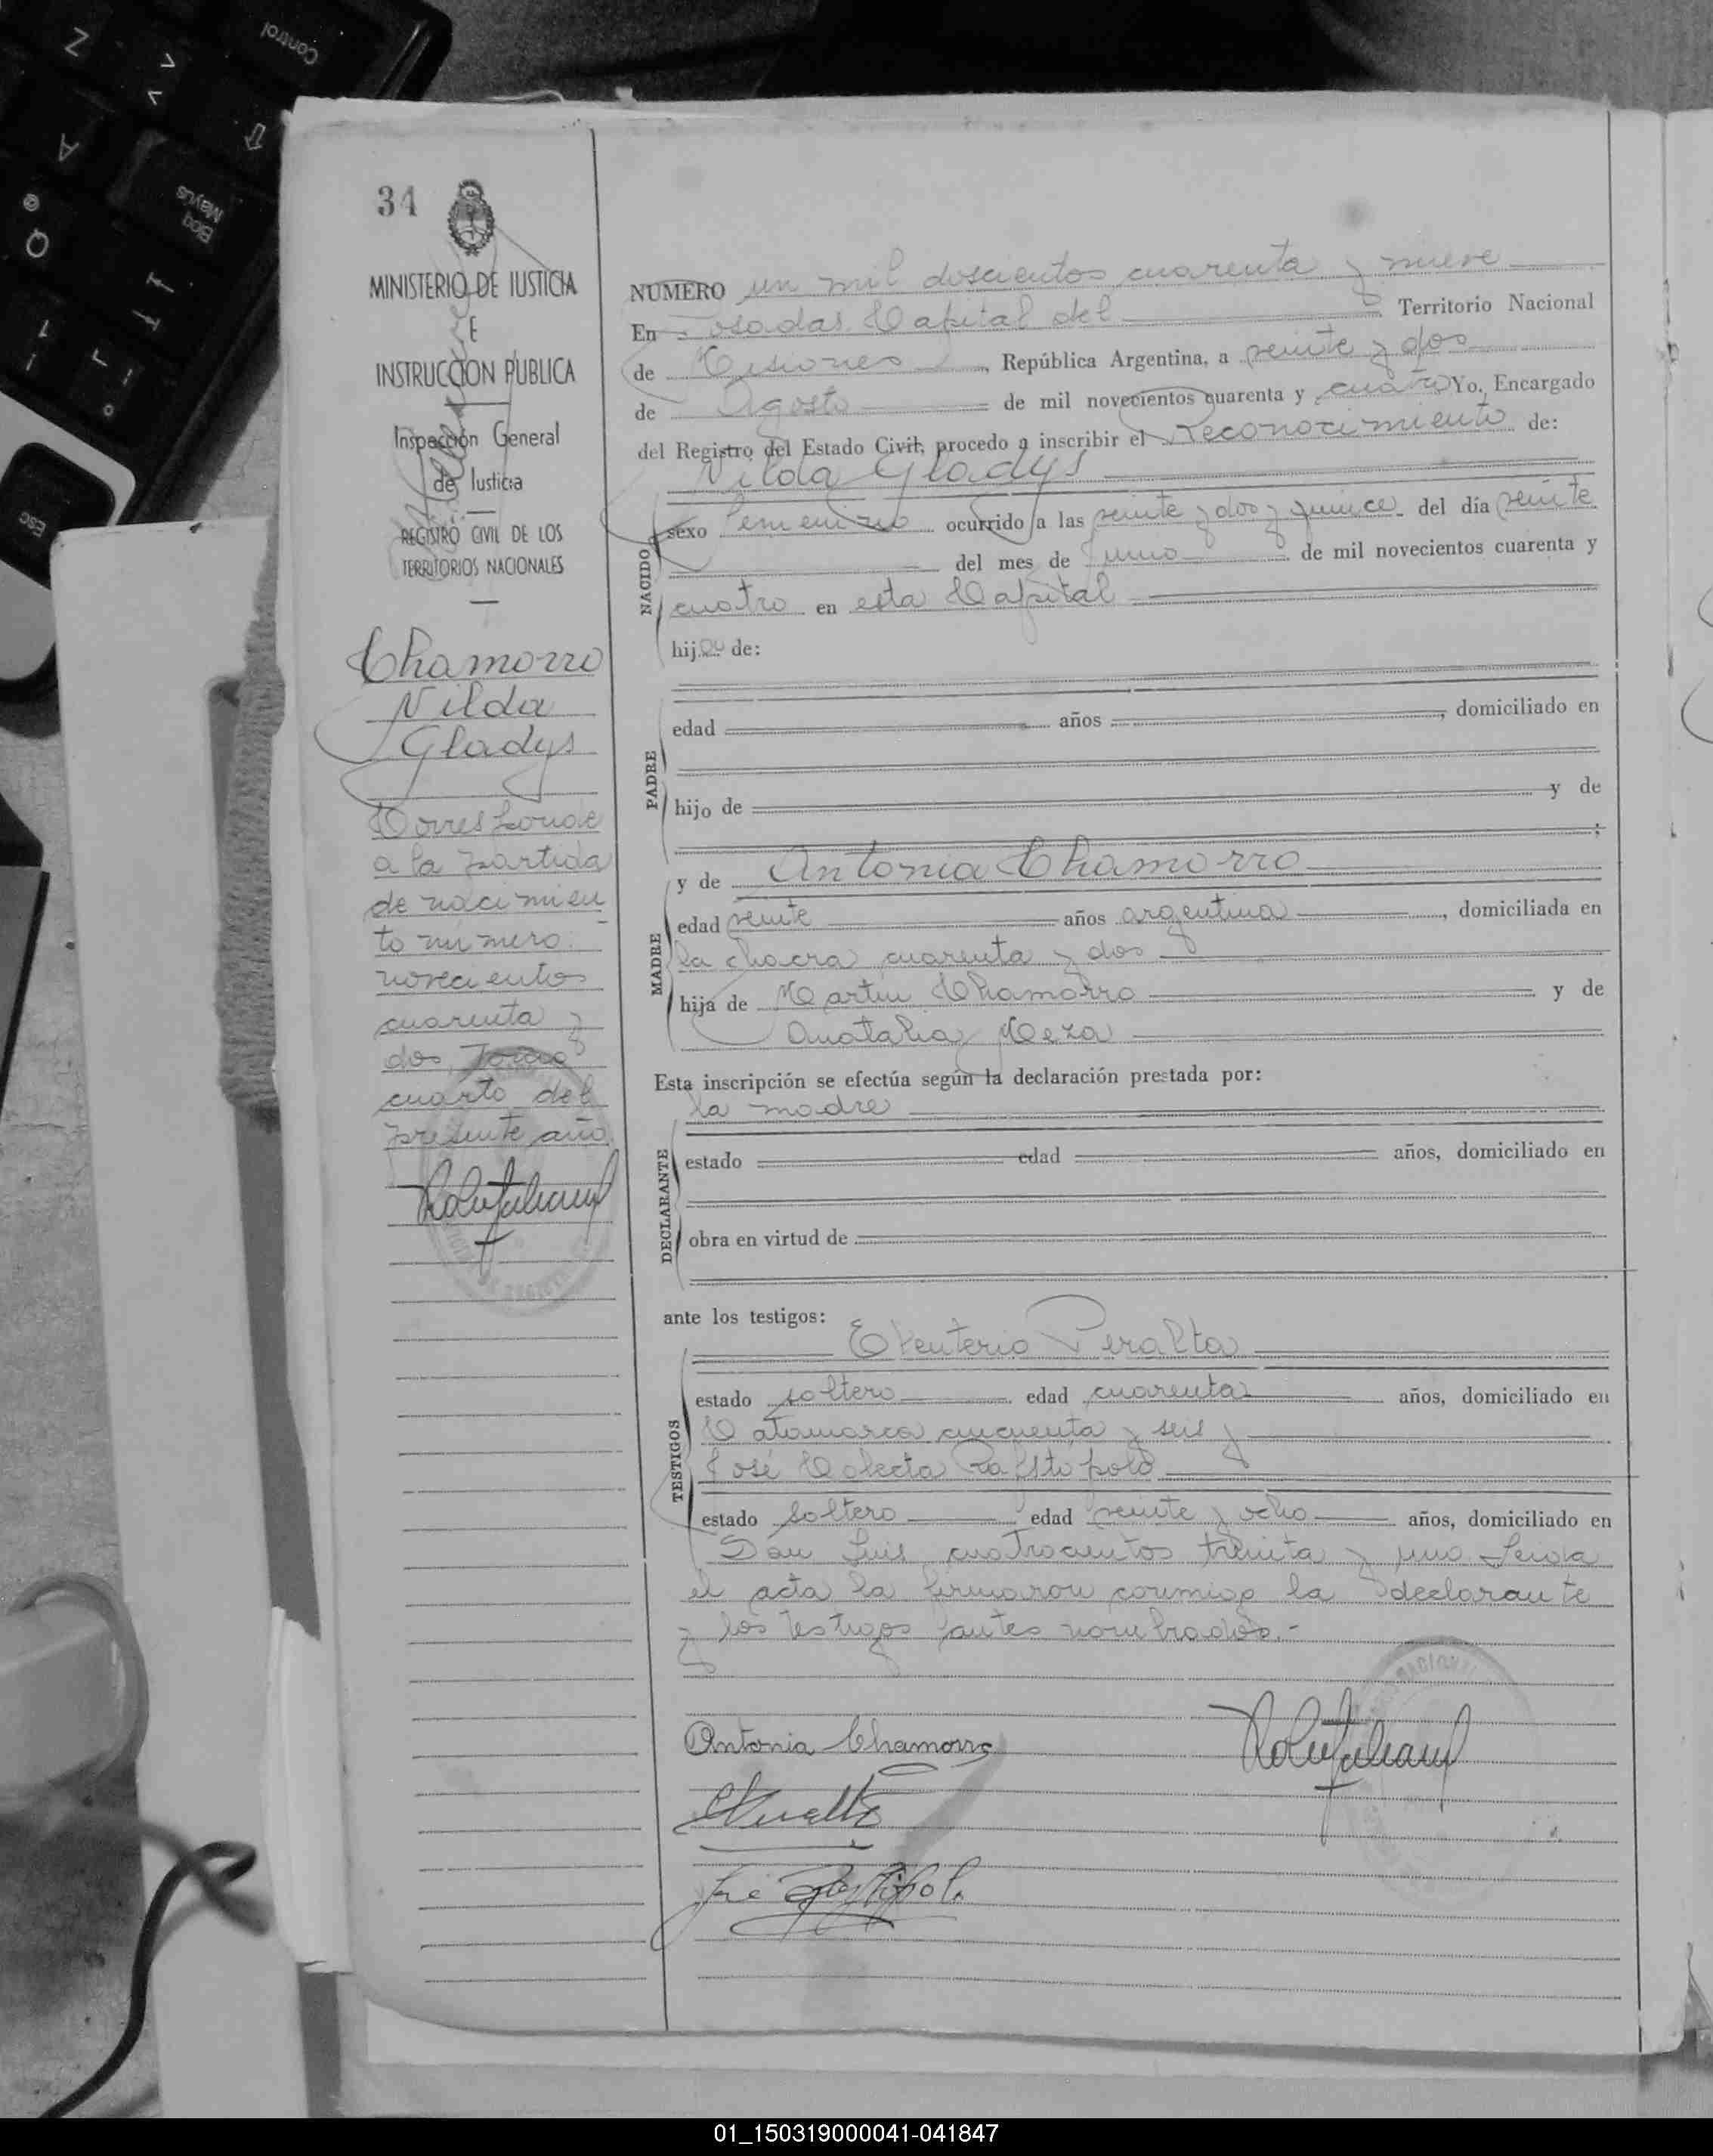 Control
Z
A
Bloq
Mayus
Q
@
Esc
34
MINISTERIO DE JUSTICIA
E
INSTRUCCION PUBLICA
Inspección General
de Justicia
REGISTRO CIVIL DE LOS
TERRITORIOS NACIONALES
Chamorro
Nilda
Gladys
Corresponde
a la partida
de nacimien
to número
novecientos
cuarenta y
dos, Tomo
cuarto del
presente año
NUMERO un mil doscientos cuarenta y nueve
En Posadas Capital del Territorio Nacional
de Misiones, República Argentina, a veinte y dos
de Agosto de mil novecientos cuarenta y cuatro Yo, Encargado
del Registro del Estado Civil, procedo a inscribir el Reconocimiento de:
Nilda Gladys
NACIDO
sexo femenino ocurrido a las veinte y dos y quince del día veinte
del mes de Junio de mil novecientos cuarenta y
cuatro en esta Capital
hij de:
PADRE
edad años, domiciliado en
hijo de y de
;
MADRE
y de Antonia Chamorro
edad veinte años argentina, domiciliada en
la chacra cuarenta y dos
hija de Martin Chamorro y de
Anatalia Meza
Esta inscripción se efectúa según la declaración prestada por:
la madre
DECLARANTE
estado edad años, domiciliado en
obra en virtud de
ante los testigos:
TESTIGOS
Eleuterio Peralta
estado soltero edad cuarenta años, domiciliado en
Catamarca cincuenta y seis y
José Colecta
estado soltero edad veinte y ocho años, domiciliado en
San Luis cuatrocientos treinta y uno Leida
el acta la firmaron conmigo la declarante
y los testigos antes nombrados.-
Antonia Chamorro
01_150319000041-041847